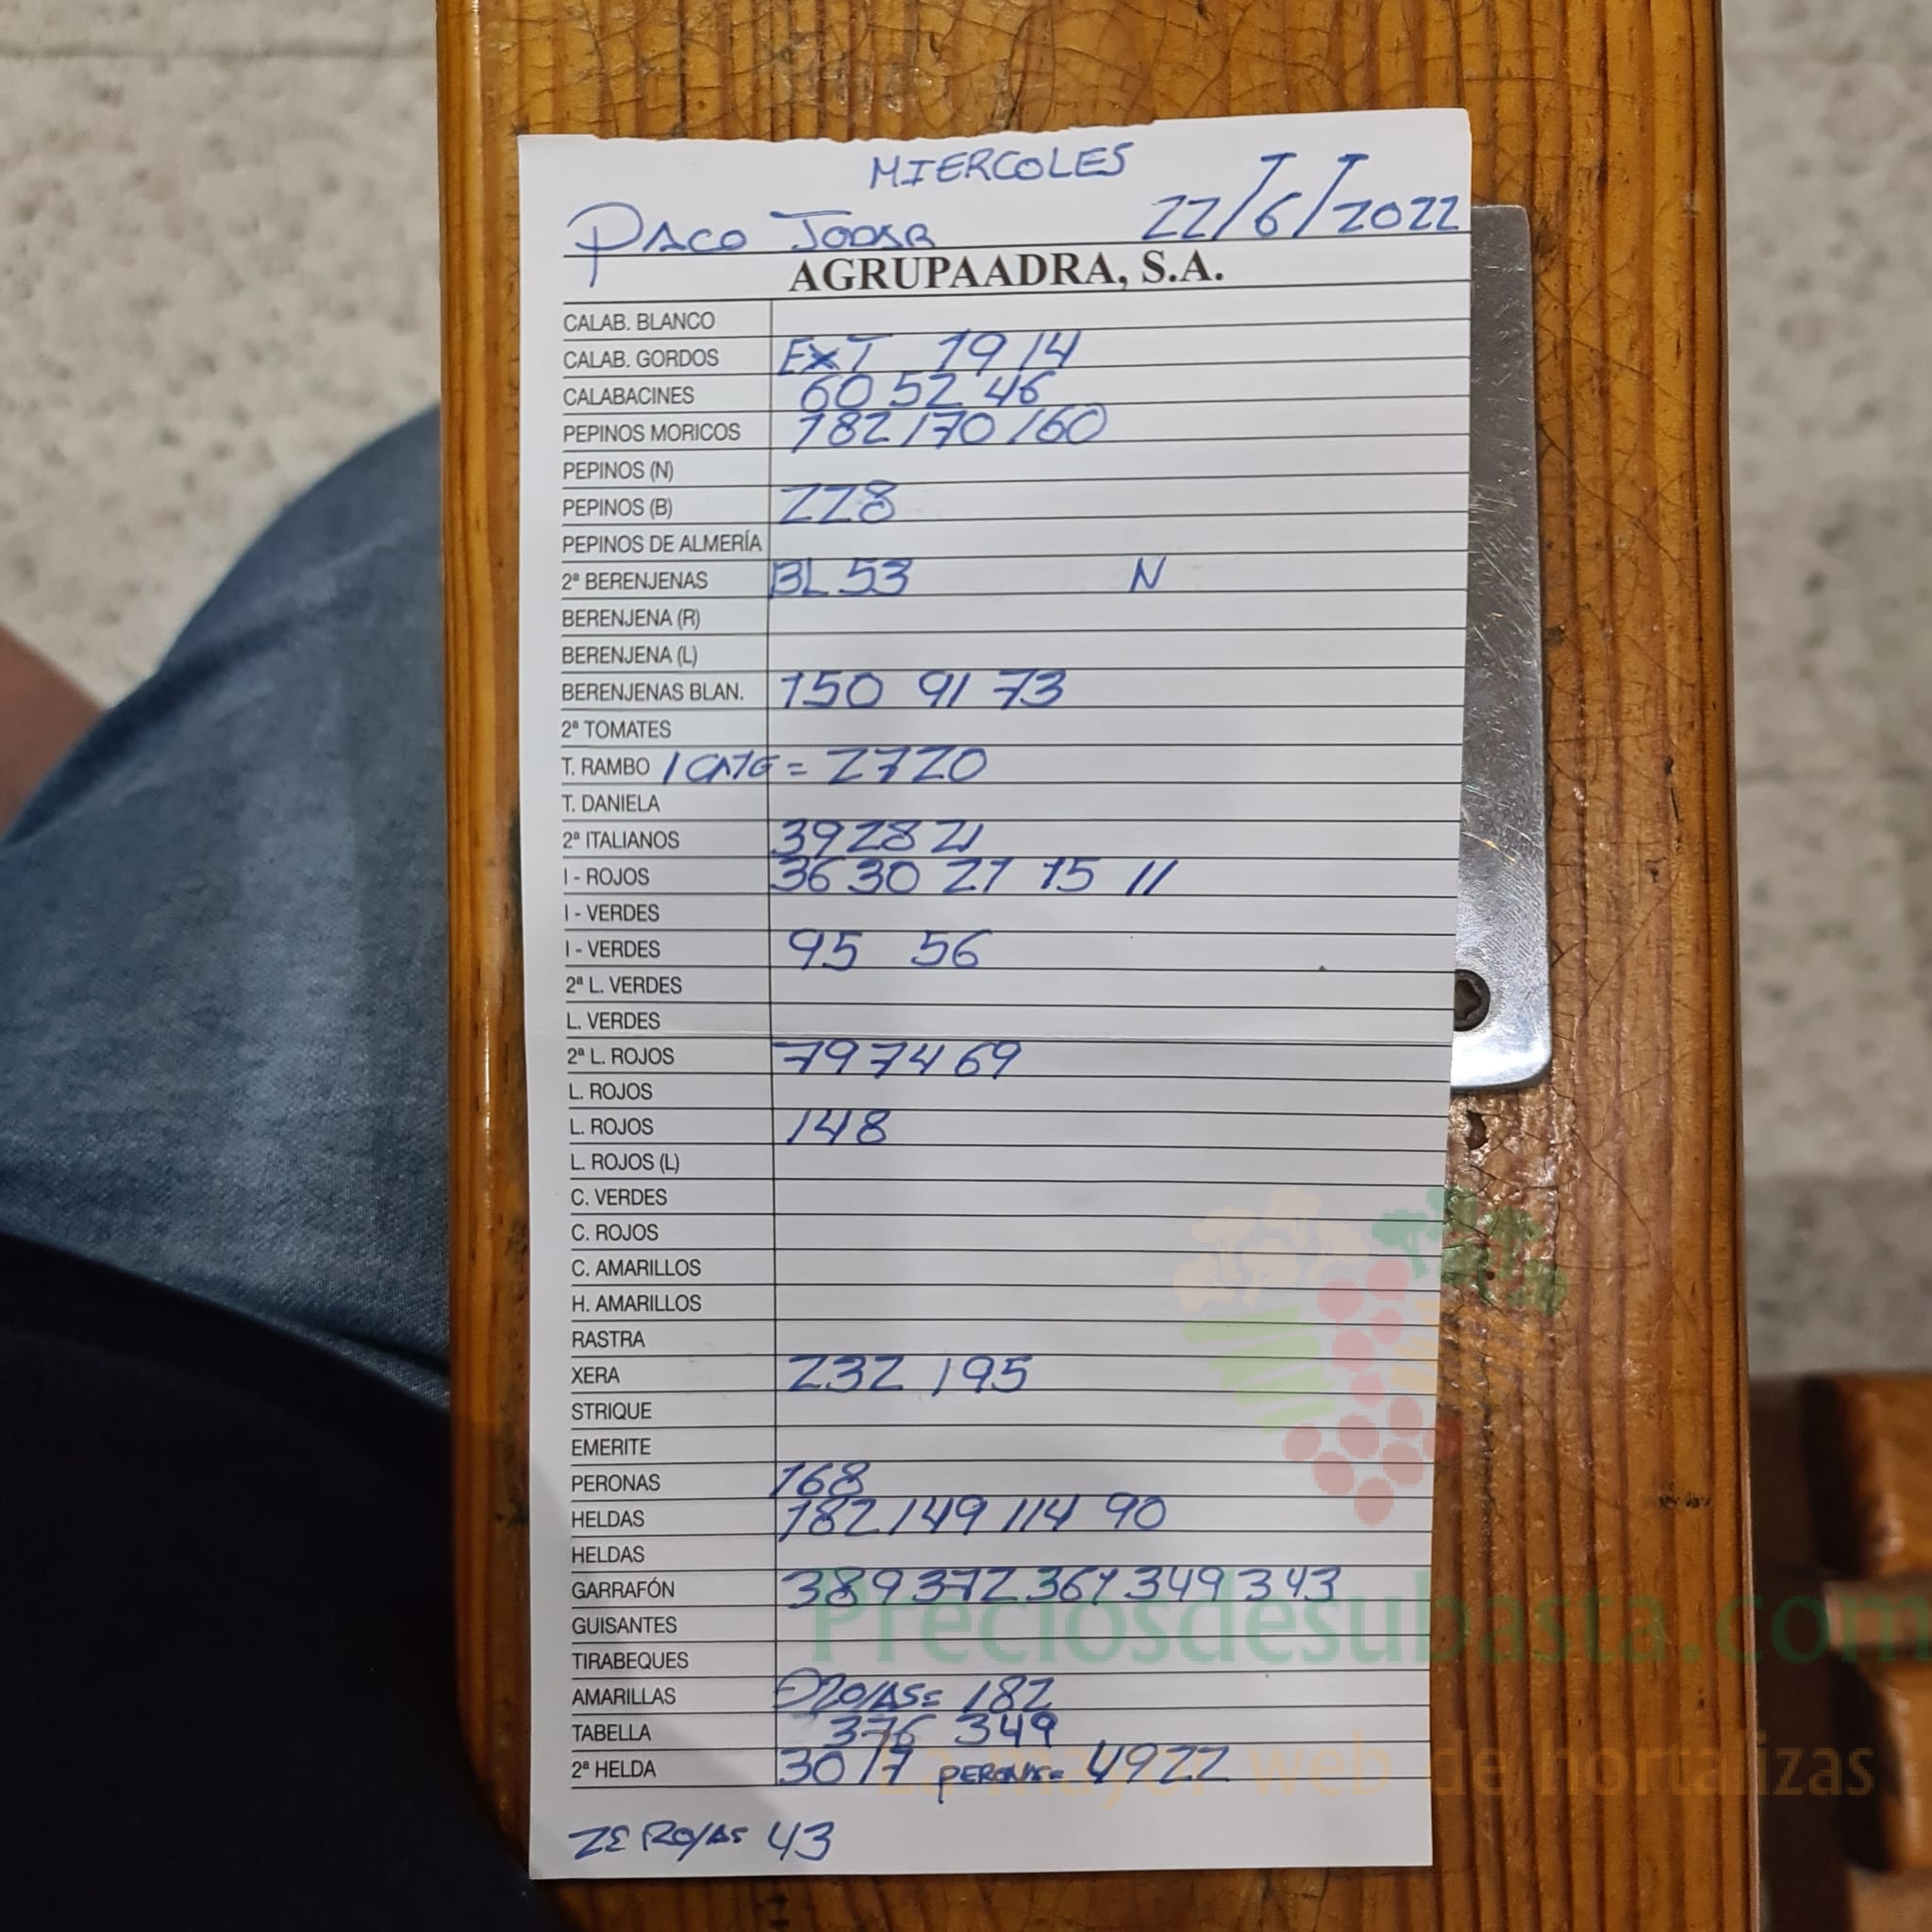 MIERCOLES
PACO JODAR 22/6/2022
AGRUPAADRA, S.A.
CALAB. BLANCO
CALAB. GORDOS EXT 19 14
CALABACINES 60 52 46
PEPINOS MORICOS 182 170 160
PEPINOS (N)
PEPINOS (B) 228
PEPINOS DE ALMERÍA
2ª BERENJENAS BL 53 N
BERENJENA (R)
BERENJENA (L)
BERENJENAS BLAN. 150 91 73
2ª TOMATES
T. RAMBO 1 CATG = 27 20
T. DANIELA
2ª ITALIANOS 39 28 21
I - ROJOS 36 30 21 15 11
I - VERDES
I - VERDES 95 56
2ª L. VERDES
L. VERDES
2ª L. ROJOS 79 74 69
L. ROJOS
L. ROJOS 148
L. ROJOS (L)
C. VERDES
C. ROJOS
C. AMARILLOS
H. AMARILLOS
RASTRA
XERA 232 195
STRIQUE
EMERITE
PERONAS 168
HELDAS 182 149 114 90
HELDAS
GARRAFÓN 389 372 361 349 343
Preciosdesubasta.com
GUISANTES
TIRABEQUES
AMARILLAS 182
TABELLA 376 349
2ª HELDA 30 17 PERONAS= 49 22
La mayor web de hortalizas
43